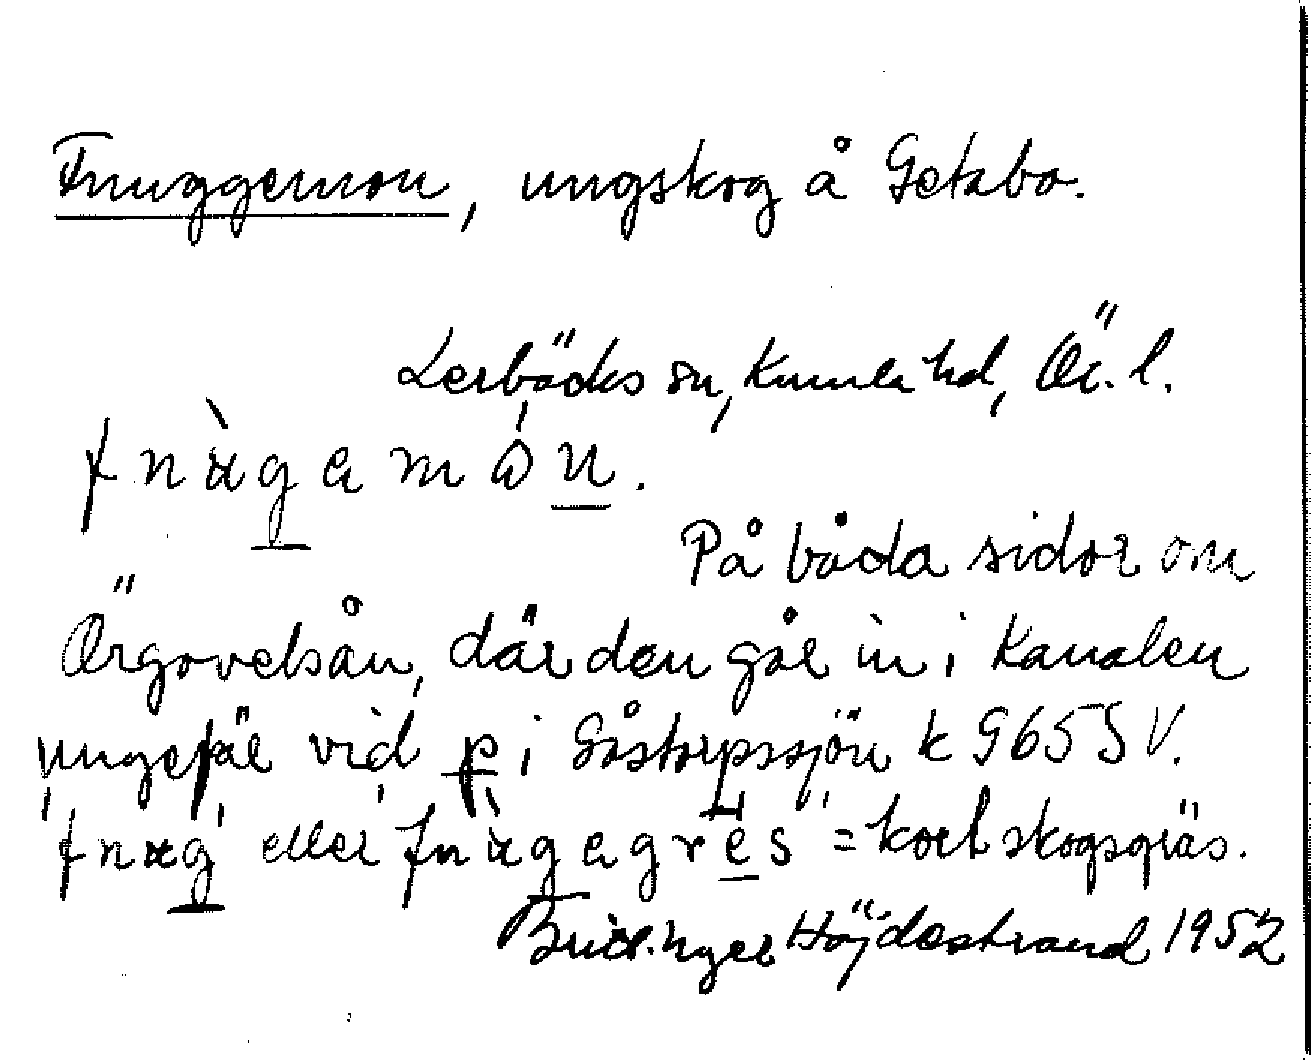 Fnuggemon, ungskog å Getabo.
Lerbäcks sn, Kumla hd, Ör. l.
fnàgamón.
På båda sidor om
Örgavelsån, där den går in i Kanalen
ungefär vid p i Såstorpssjön k 965 SV.
'fnag' eller 'fnàgagrès' = kort skogsgräs.
Höjdestrand 1952